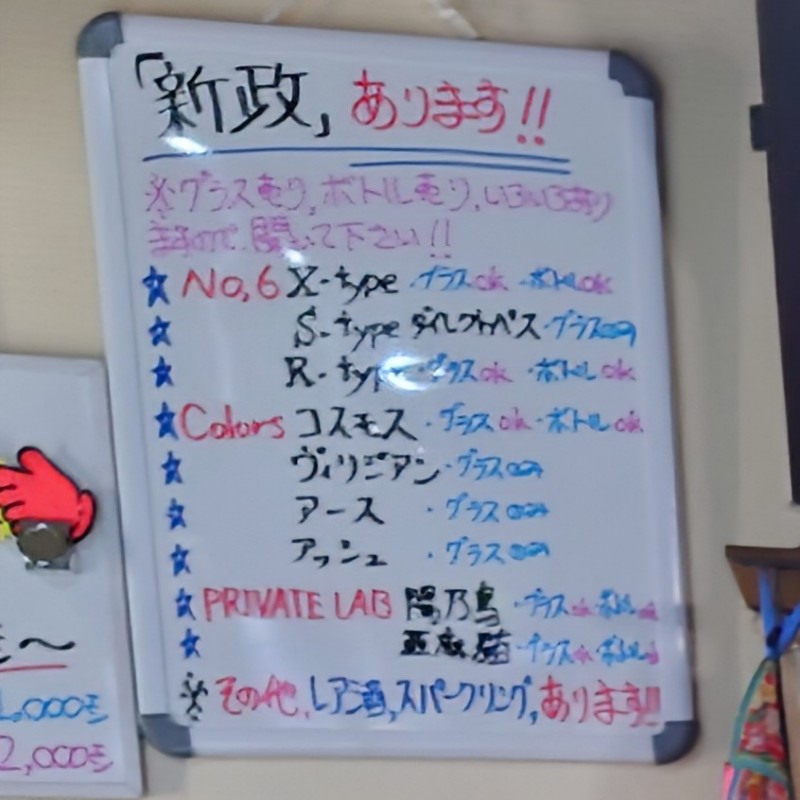 「新政」あります!!
※グラス売り,ボトル売り,いろいろあり
ますので、聞いて下さい!!
★No,6 X-type ・グラスok ・ボトルok
★ S-type ダイレクトパス・グラスのみ
★ R-type・グラスok ・ボトルok
★Colors コスモス ・グラスok・ボトルok
★ ヴィリジアン・グラスのみ
★ アース ・グラスのみ
★ アッシュ ・グラスのみ
★PRIVATE LAB 陽乃鳥 ・グラスok ボトルok
★ 亜麻猫・グラスok ボトルok
※その他,レア酒,スパークリング,あります!!
〜
1,000
2,000